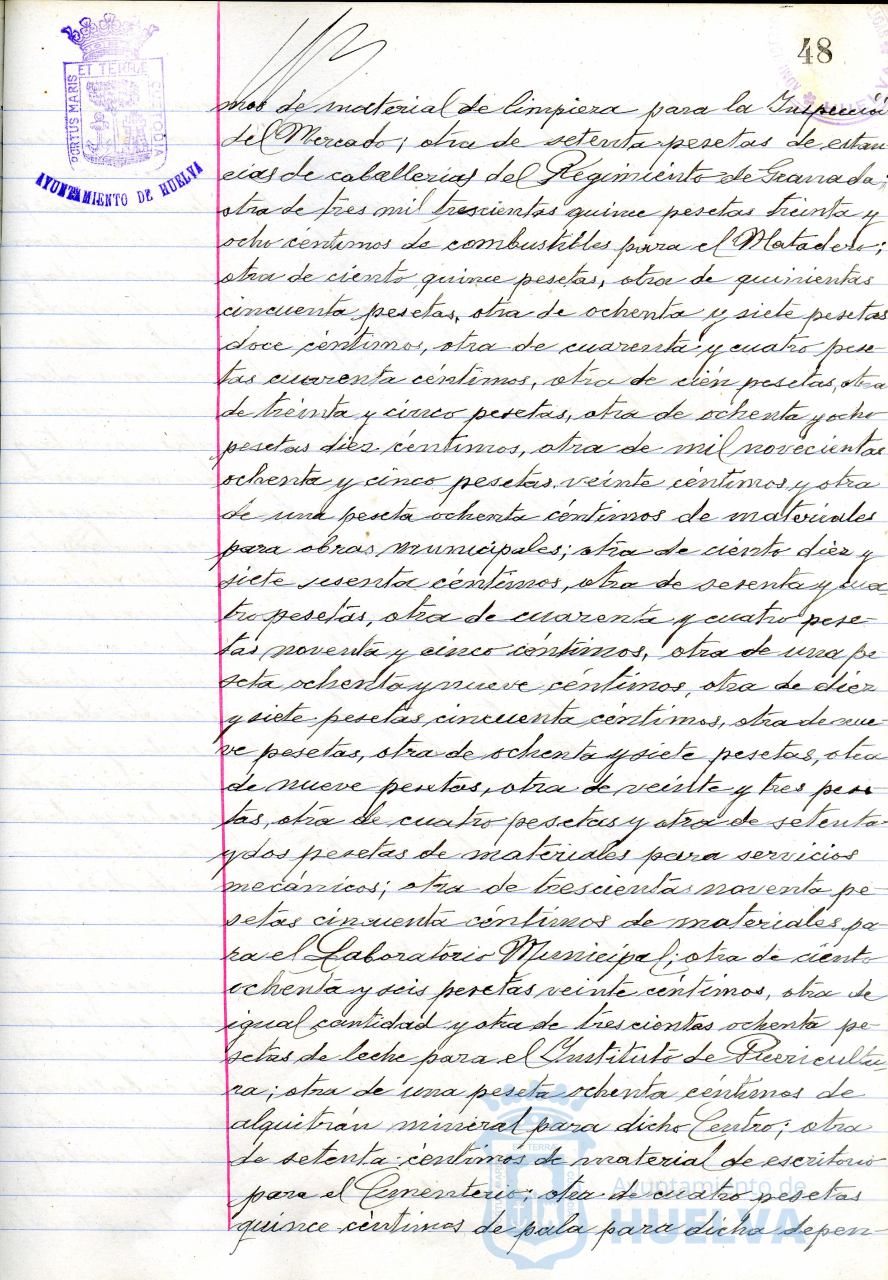 48
PORTUS MARIS
ET TERRÆ
CUSTODIA
AYUNTAMIENTO DE HUELVA
mos de material de limpieza para la Inspección
del Mercado; otra de setenta pesetas de estan
cias de caballerias del Regimiento de Granada;
otra de tres mil trescientas quince pesetas treinta y
ocho céntimos de combustibles para el Matadero;
otra de ciento quince pesetas, otra de quinientas
cincuenta pesetas, otra de ochenta y siete pesetas
doce céntimos, otra de cuarenta y cuatro pese-
tas cuarenta céntimos, otra de cién pesetas, otra
de treinta y cinco pesetas, otra de ochenta y ocho
pesetas diez céntimos, otra de mil novecientas
ochenta y cinco pesetas veinte céntimos y otra
de una peseta ochenta céntimos de materiales
para obras municipales; otra de ciento diez y
siete sesenta céntimos, otra de sesenta y cua-
tro pesetas, otra de cuarenta y cuatro pese-
tas noventa y cinco céntimos, otra de una pe
seta ochenta y nueve céntimos, otra de diez
y siete pesetas cincuenta céntimos, otra de nue-
ve pesetas, otra de ochenta y siete pesetas, otra
de nueve pesetas, otra de veinte y tres pese-
tas, otra de cuatro pesetas y otra de setenta
y dos pesetas de materiales para servicios
mecánicos; otra de trescientas noventa pe-
setas cincuenta céntimos de materiales pa-
ra el Laboratorio Municipal; otra de ciento
ochenta y seis pesetas veinte céntimos, otra de
igual cantidad y otra de trescientas ochenta pe-
setas de leche para el Instituto de Puericultu-
ra; otra de una peseta ochenta céntimos de
alquitrán mineral para dicho Centro; otra
de setenta céntimos de material de escritorio
para el Cementerio; otra de cuatro pesetas
quince céntimos de pala para dicha depen-
Ayuntamiento de
HUELVA